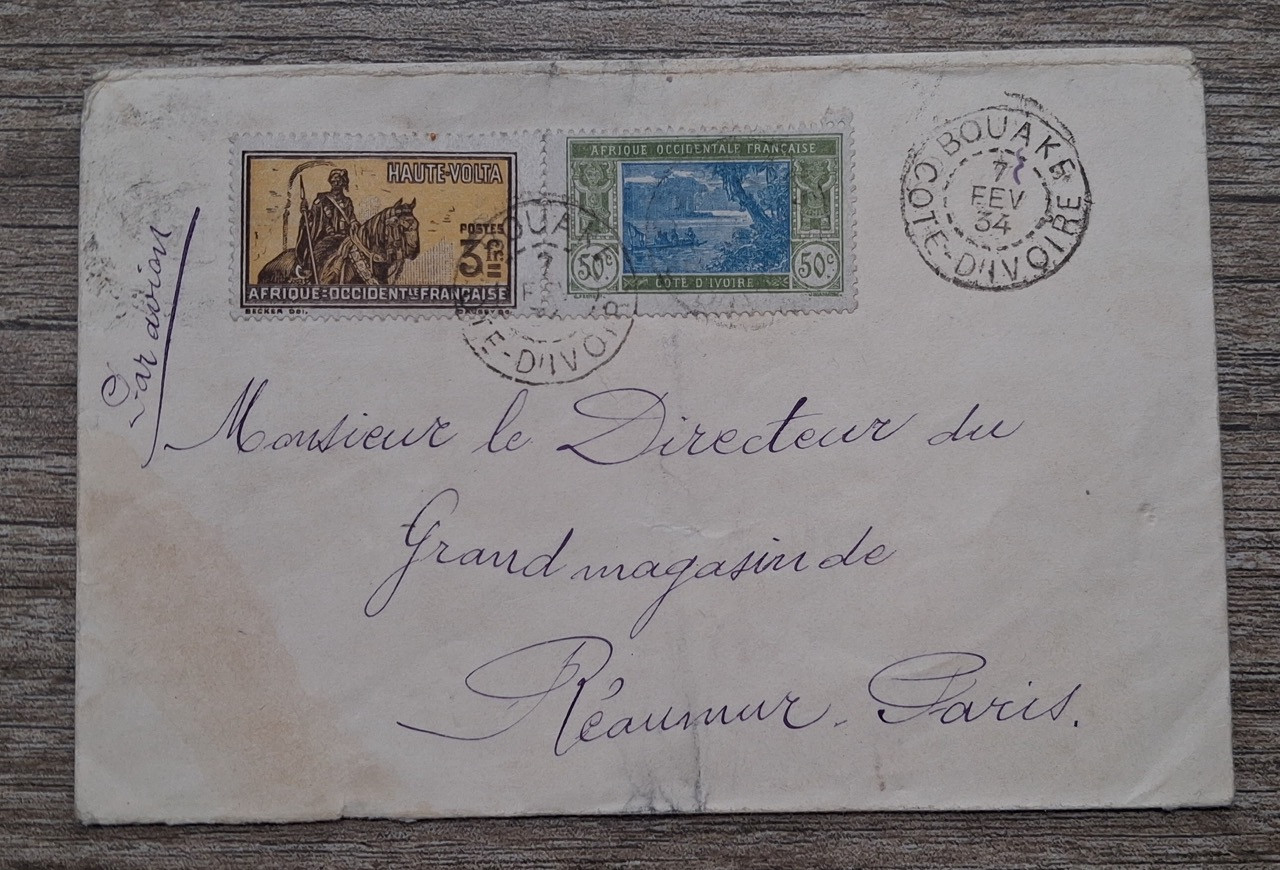 HAUTE-VOLTA
POSTES
3fr=
AFRIQUE=OCCIDENTLE FRANÇAISE
BECKER DEL.
AFRIQUE OCCIDENTALE FRANÇAISE
50c 50c
CÔTE D'IVOIRE
BOUAKE
7
FEV
34
COTE-D'IVOIRE
BOUA
7
FE
TE-D'IVOIR
Par avion
Monsieur le Directeur du
Grand magasin de
Réaumur - Paris.